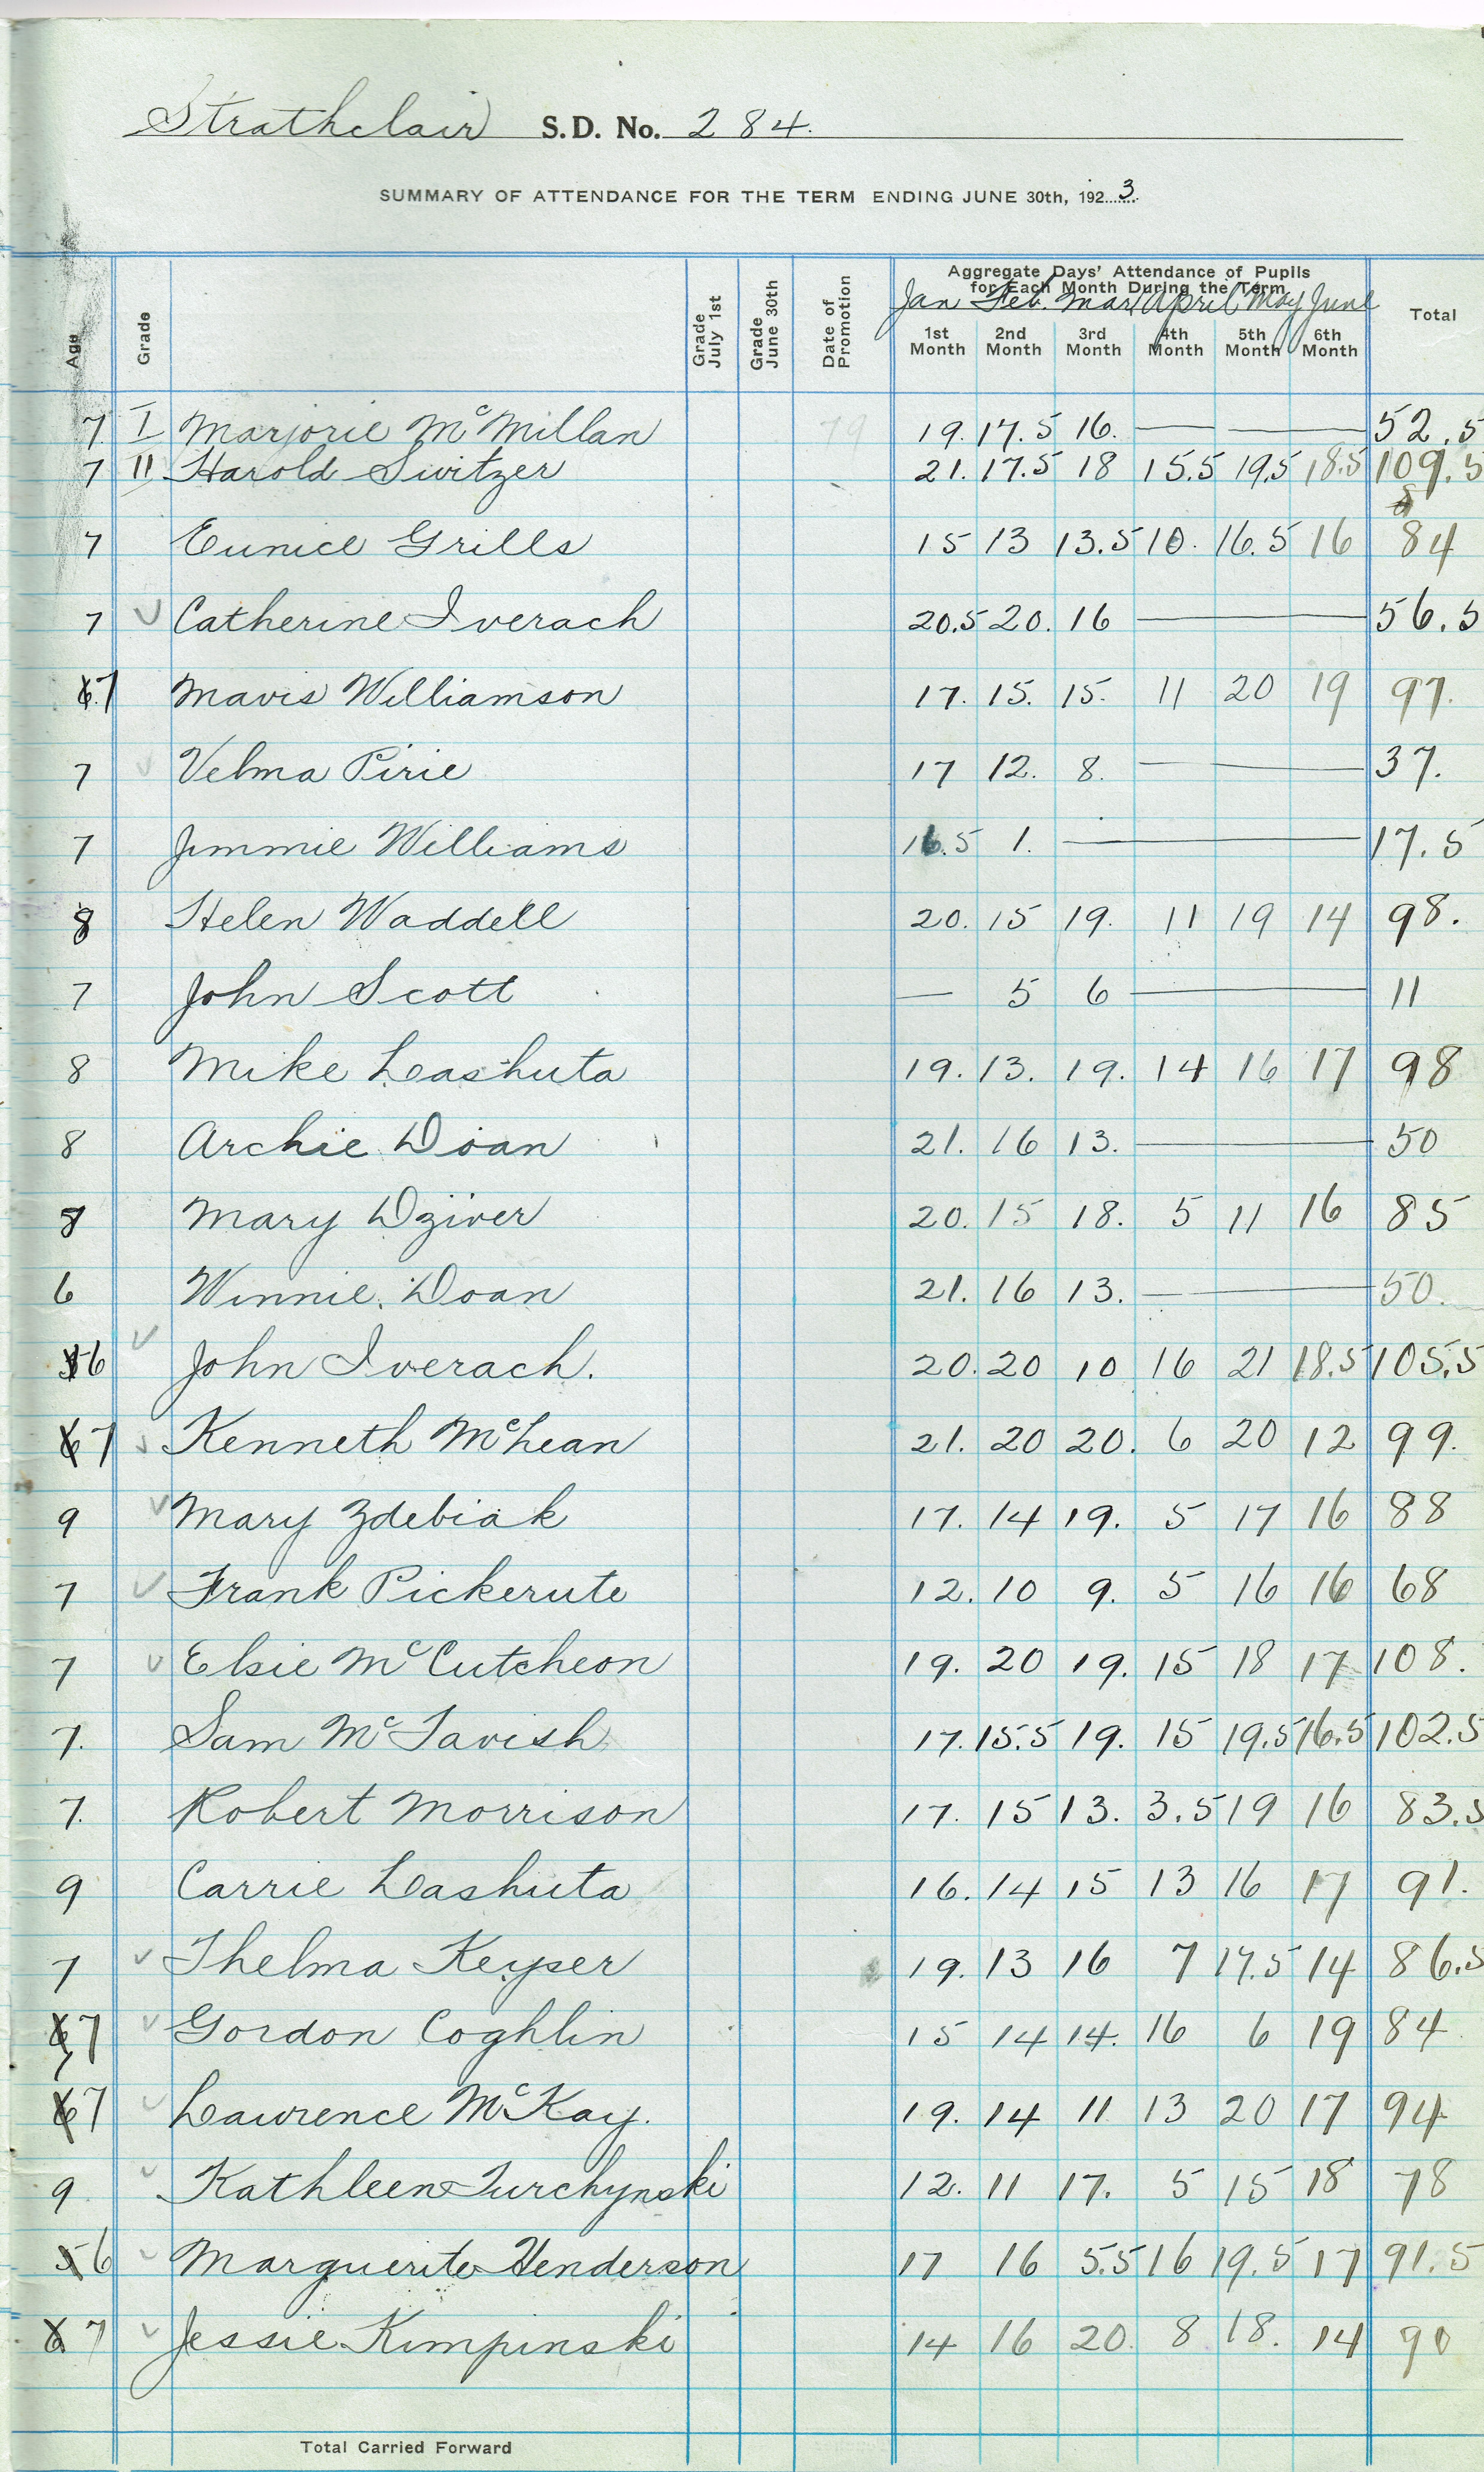 Strathclair S.D. No. 284.
SUMMARY OF ATTENDANCE FOR THE TERM ENDING JUNE 30th, 1923
Aggregate Days' Attendance of Pupils
for Each Month During the Term
Jan Feb. Mar April May June
Age Grade Grade July 1st Grade June 30th Date of Promotion 1st Month 2nd Month 3rd Month 4th Month 5th Month 6th Month Total
7 I Marjorie McMillan 19. 17.5 16. — — 52.5
7 II Harold Switzer 21. 17.5 18 15.5 19.5 18.5 109.5
7 Eunice Grills 15 13 13.5 10. 16.5 16 84
7 Catherine Iverach 20.5 20. 16 — 56.5
6 7 Mavis Williamson 17. 15. 15. 11 20 19 97.
7 Velma Pirie 17 12. 8. — 37.
7 Jimmie Williams 16.5 1. — 17.5
8 Helen Waddell 20. 15 19. 11 19 14 98.
7 John Scott — 5 6 — 11
8 Mike Lashuta 19. 13. 19. 14 16 17 98
8 Archie Doan 21. 16 13. — 50
8 Mary Dziver 20. 15 18. 5 11 16 85
6 Winnie Doan 21. 16 13. — 50.
5 6 John Iverach. 20. 20 10 16 21 18.5 105.5
6 7 Kenneth McLean 21. 20 20. 6 20 12 99.
9 Mary Zdebiak 17. 14 19. 5 17 16 88
7 Frank Pickerute 12. 10 9. 5 16 16 68
7 Elsie McCutcheon 19. 20 19. 15 18 17 108.
7. Sam McTavish 17. 15.5 19. 15 19.5 16.5 102.5
7. Robert Morrison 17. 15 13. 3.5 19 16 83.5
9 Carrie Lashuta 16. 14 15 13 16 17 91.
7 Thelma Keyser 19. 13 16 7 17.5 14 86.5
6 7 Gordon Coghlin 15 14 14. 16 6 19 84
6 7 Lawrence McKay. 19. 14 11 13 20 17 94
9 Kathleen Turchynski 12. 11 17. 5 15 18 78
5 6 Marguerite Henderson 17 16 5.5 16 19.5 17 91.5
6 7 Jessie Kimpinski 14 16 20. 8 18. 14 90
Total Carried Forward